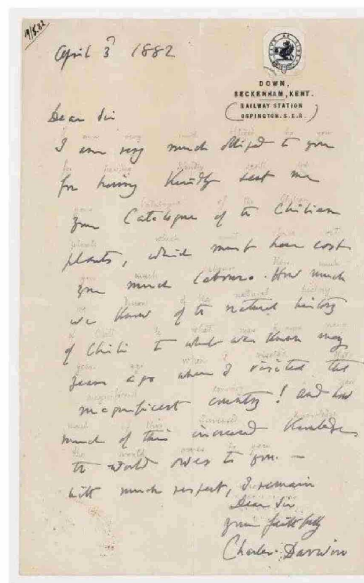 9/8.82
April 3d 1882
DOWN,
BECKENHAM, KENT.
(RAILWAY STATION
ORPINGTON. S.E.R.)
Dear Sir
I am very much obliged to you
for having kindly sent me
your Catalogue of the Chilian
plants, which must have cost
you much labour. How much
we know of the natural history
of Chili to what was known many
years ago when I visited that
magnificent country! and how
much of this increased knowledge
the world owes to you. —
With much respect, I remain
Dear Sir
yours faithfully
Charles Darwin